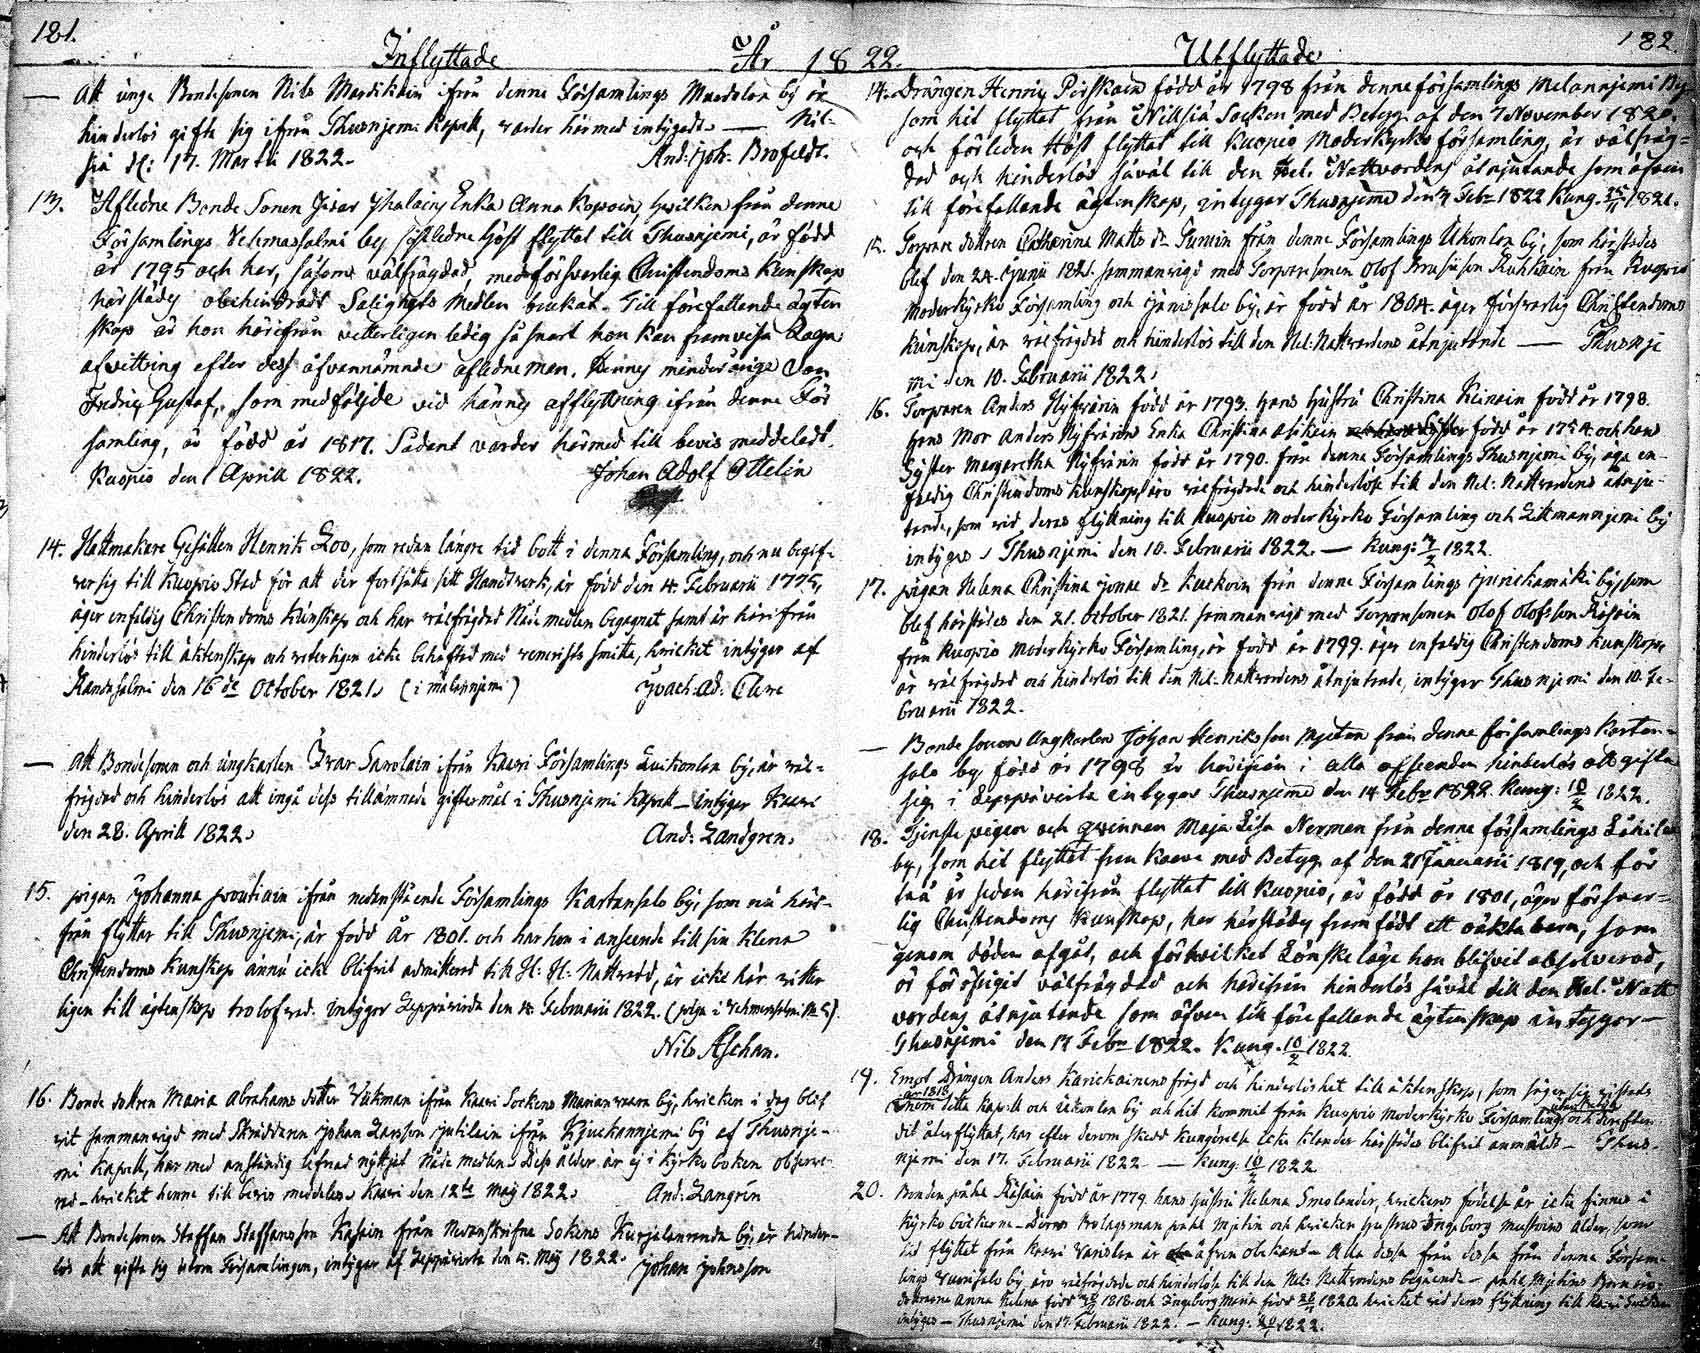 181.
Inflyttade
År 1822.
Utflyttade
182
— Att unge Bondesonen Nils Mardikain ifrån denne Församlings by är
hinderlös gifta sig ifrån Thusnjemi Kapell, warder härmed intygadt. — Nil-
siä d. 17. Martii 1822. And: Joh: Brofeldt.
13. Afledne Bonde Sonen Ihalains Enka Anna Kopoin, hvilken från denne
Församlings Vehmasalmi by sistledne Höst flyttat till Thusnjemi, är född
år 1795 och har, såsom välfrägdad, med försvarlig Christendoms Kunskap
härstädes obehindradt Salighets medlen brukat. Till förefallande ägten
skap är hon härifrån vetterligen ledig så snart hon kan framvisa Laga
afvittring efter dess ofvannämnde aflednе man. Hennes minderårige Son
Fredric Gustaf, som medföljde vid hännes afflyttning ifrån denne För
samling, är född år 1817. Sådant varder härmed till bevis meddeladt.
Kuopio den 1 Aprill 1822. Johan Adolf Ottelin
14. Hattmakare Gesällen Henrik Loo, som redan längre tid bott i denna Församling, och nu begif-
ver sig till Kuopio Stad för att der fortsätta sitt Handtverk, är född den 4. Februarii 1775,
äger enfaldig Christendoms Kunskap och har välfrägdad Nådemedlen begagnat samt är härifrån
hinderlös till äktenskap och veterligen icke behäftad med venerisk smitta, hvilcket intygar af
Randasalmi den 16de October 1821. (i mälannjemi) Joach: Ad: Clere
— Att Bondesonen och ungkarlen Ivar Savolain ifrån Kaavi Församlings by, är väl-
frägdad och hinderlös att ingå dess tillämnade giftermål i Thusnjemi Kapell — intygar Kaavi
den 28. Aprill 1822. And: Landgren.
15. pigan Johanna ifrån nedanstående Församlings Kartansalo by, som nu här-
från flyttar till Thusnjemi, är född År 1801. och har hon i anseende till sin klena
Christendoms Kunskap ännu icke blifvit admitterad till H: H: Nattvard, är icke här vitter
ligen till ägtenskap trolofvad. intygar Leppävirta den 4. Februarii 1822.
Nils Aschan.
16. Bonde dottren Maria Abrahams dotter Väkman ifrån Kaavi Sockens Marianvaara by, hvilcken i dag blif
vit sammanvigd med Skräddaren Johan Larsson Jutilain ifrån by af Thusnje-
mi Kapell, har med anständig lefnad nyttjat Nåde medlen. Dess ålder är ej i Kyrko boken observe-
rad — hvilcket henne till bevis meddelas. Kaavi den 12te Maij 1822. And: Langrén
— Att Bondesonen Staffan Staffansson från Nedanskrifne Sokens Kurjalanranda by, är hinder-
lös att gifta sig utom Församlingen, intygar af Leppävirta den 5. Maij 1822. Johan Johnsson
14. Drängen Henric Pirskain född år 1798 från denne församlings Melannjemi By
som hit flyttat från Nilsiä Socken med Betyg af den 7 November 1820,
och förleden Höst flyttat till Kuopio Moderkyrko församling, är välfräg-
dad och hinderlös såväl till den Hel. Nattvardens åtnjutande som äfven
till förefallande ägtenskap, intygar Thusnjemi den 7 Febr 1822 Kung. 25/11 1821.
15. Torpare dottren Catharina Matts dr från denne Församlings Ukonlax by, som härstädes
blef den 24. Junii 1821. sammanvigd med Torparesonen Olof Ruhkain från Kuopio
Moderkyrko Församling och Jännevsalo by, är född år 1804. äger försvarlig Christendoms
kunskap, är välfrägdad och hinderlös till den Hel: Nattvardens åtnjutande — Thusnje
mi den 10. Februarii 1822.
16. Torparen Anders Hyfvärin född år 1793. Hans Hustru Christina Keinain född år 1798.
Hans Mor Anders Hyfvärins Enka Christina född år 1754. och hans
Syster Margaretha Hyfvärin född år 1790. från denna Församlings Thusnjemi by, äga en-
faldig Christendoms kunskap, äro välfrägdade och hinderlösa till den Hel: Nattvardens åtnju-
tande, som vid deras flyttning till Kuopio Moderkyrko Församling och Litmannjemi by
intygas, Thusnjemi den 10. Februarii 1822. — Kung: 1822.
17. pigan Helena Christina Jonae dr Kuckoin från denne Församlings by, som
blef härstädes den 21. October 1821. sammanvigd med Torparesonen Olof Olofsson Räsäin
från Kuopio Moderkyrko Församling, är född år 1799. äger enfaldig Christendoms kunskap,
är välfrägdad och hinderlös till den Hel: Nattvardens åtnjutande, intygar Thusnjemi den 10. Fe-
bruarii 1822.
— Bonde sonen Ungkarlen Johan Henriksson från denne församlings Kartan-
salo by född år 1798 är härifrån i alla afseenden hinderlös att gifta
sig i Leppävirta intygar Thusnjemi den 14 Febr 1822 Kung: 10/2 1822.
18. Tjenste pigan och qwinnan Maja Lisa Nerman från denne församlings
by, som hit flyttat från Kaavi med Betyg af den 21 Januarii 1819, och för
två år sedan härifrån flyttat till Kuopio, är född år 1801, äger försvar-
lig Christendoms Kunskap, har härstädes framfödt ett oäkta barn, som
genom döden afgåt, och för hvilket Lönskeläge hon blifvit absolverad,
är för öfrigit välfrägdad och härifrån hinderlös såväl till den Hel. Natt
vardens åtnjutande som äfven till förefallande ägtenskap intygar —
Thusnjemi den 17 Febr 1822. Kung. 10/2 1822
19. Drängen Anders Karickainens frägd och hinderlöshet till äktenskap, som säger sig vistats
år 1818
inom detta Kapell och by och hit kommit från Kuopio Moderkyrko Församling och derefter
dit återflyttat, har efter derom skedd kungörelse icke klander härstädes blifvit anmäldt — Thus-
njemi den 17. Februarii 1822 — Kung. 10/2 1822
20. Bonden påhl Räsäin född år 1779. hans Hustru Helena Smolander, hvilckens födelse år icke finnes i
Kyrko böckerne — Deras Bolagsman påhl Mjetin och hvilcken Hustrus Ingeborg ålder, som
hit flyttat från Kaavi är äfven obekant — Alla dessa från denna Försam-
lings by, äro välfrägdade och hinderlösa till den Hel: Nattvardens begående — påhl Mjetins Barn äro
döttrarne Anna Helena född 1818. och Ingeborg Maria född 1820. hvilcket vid deras flyttning till Kaavi Socken
intygas — Thusnjemi den 17. Februarii 1822. — Kung: 1822.